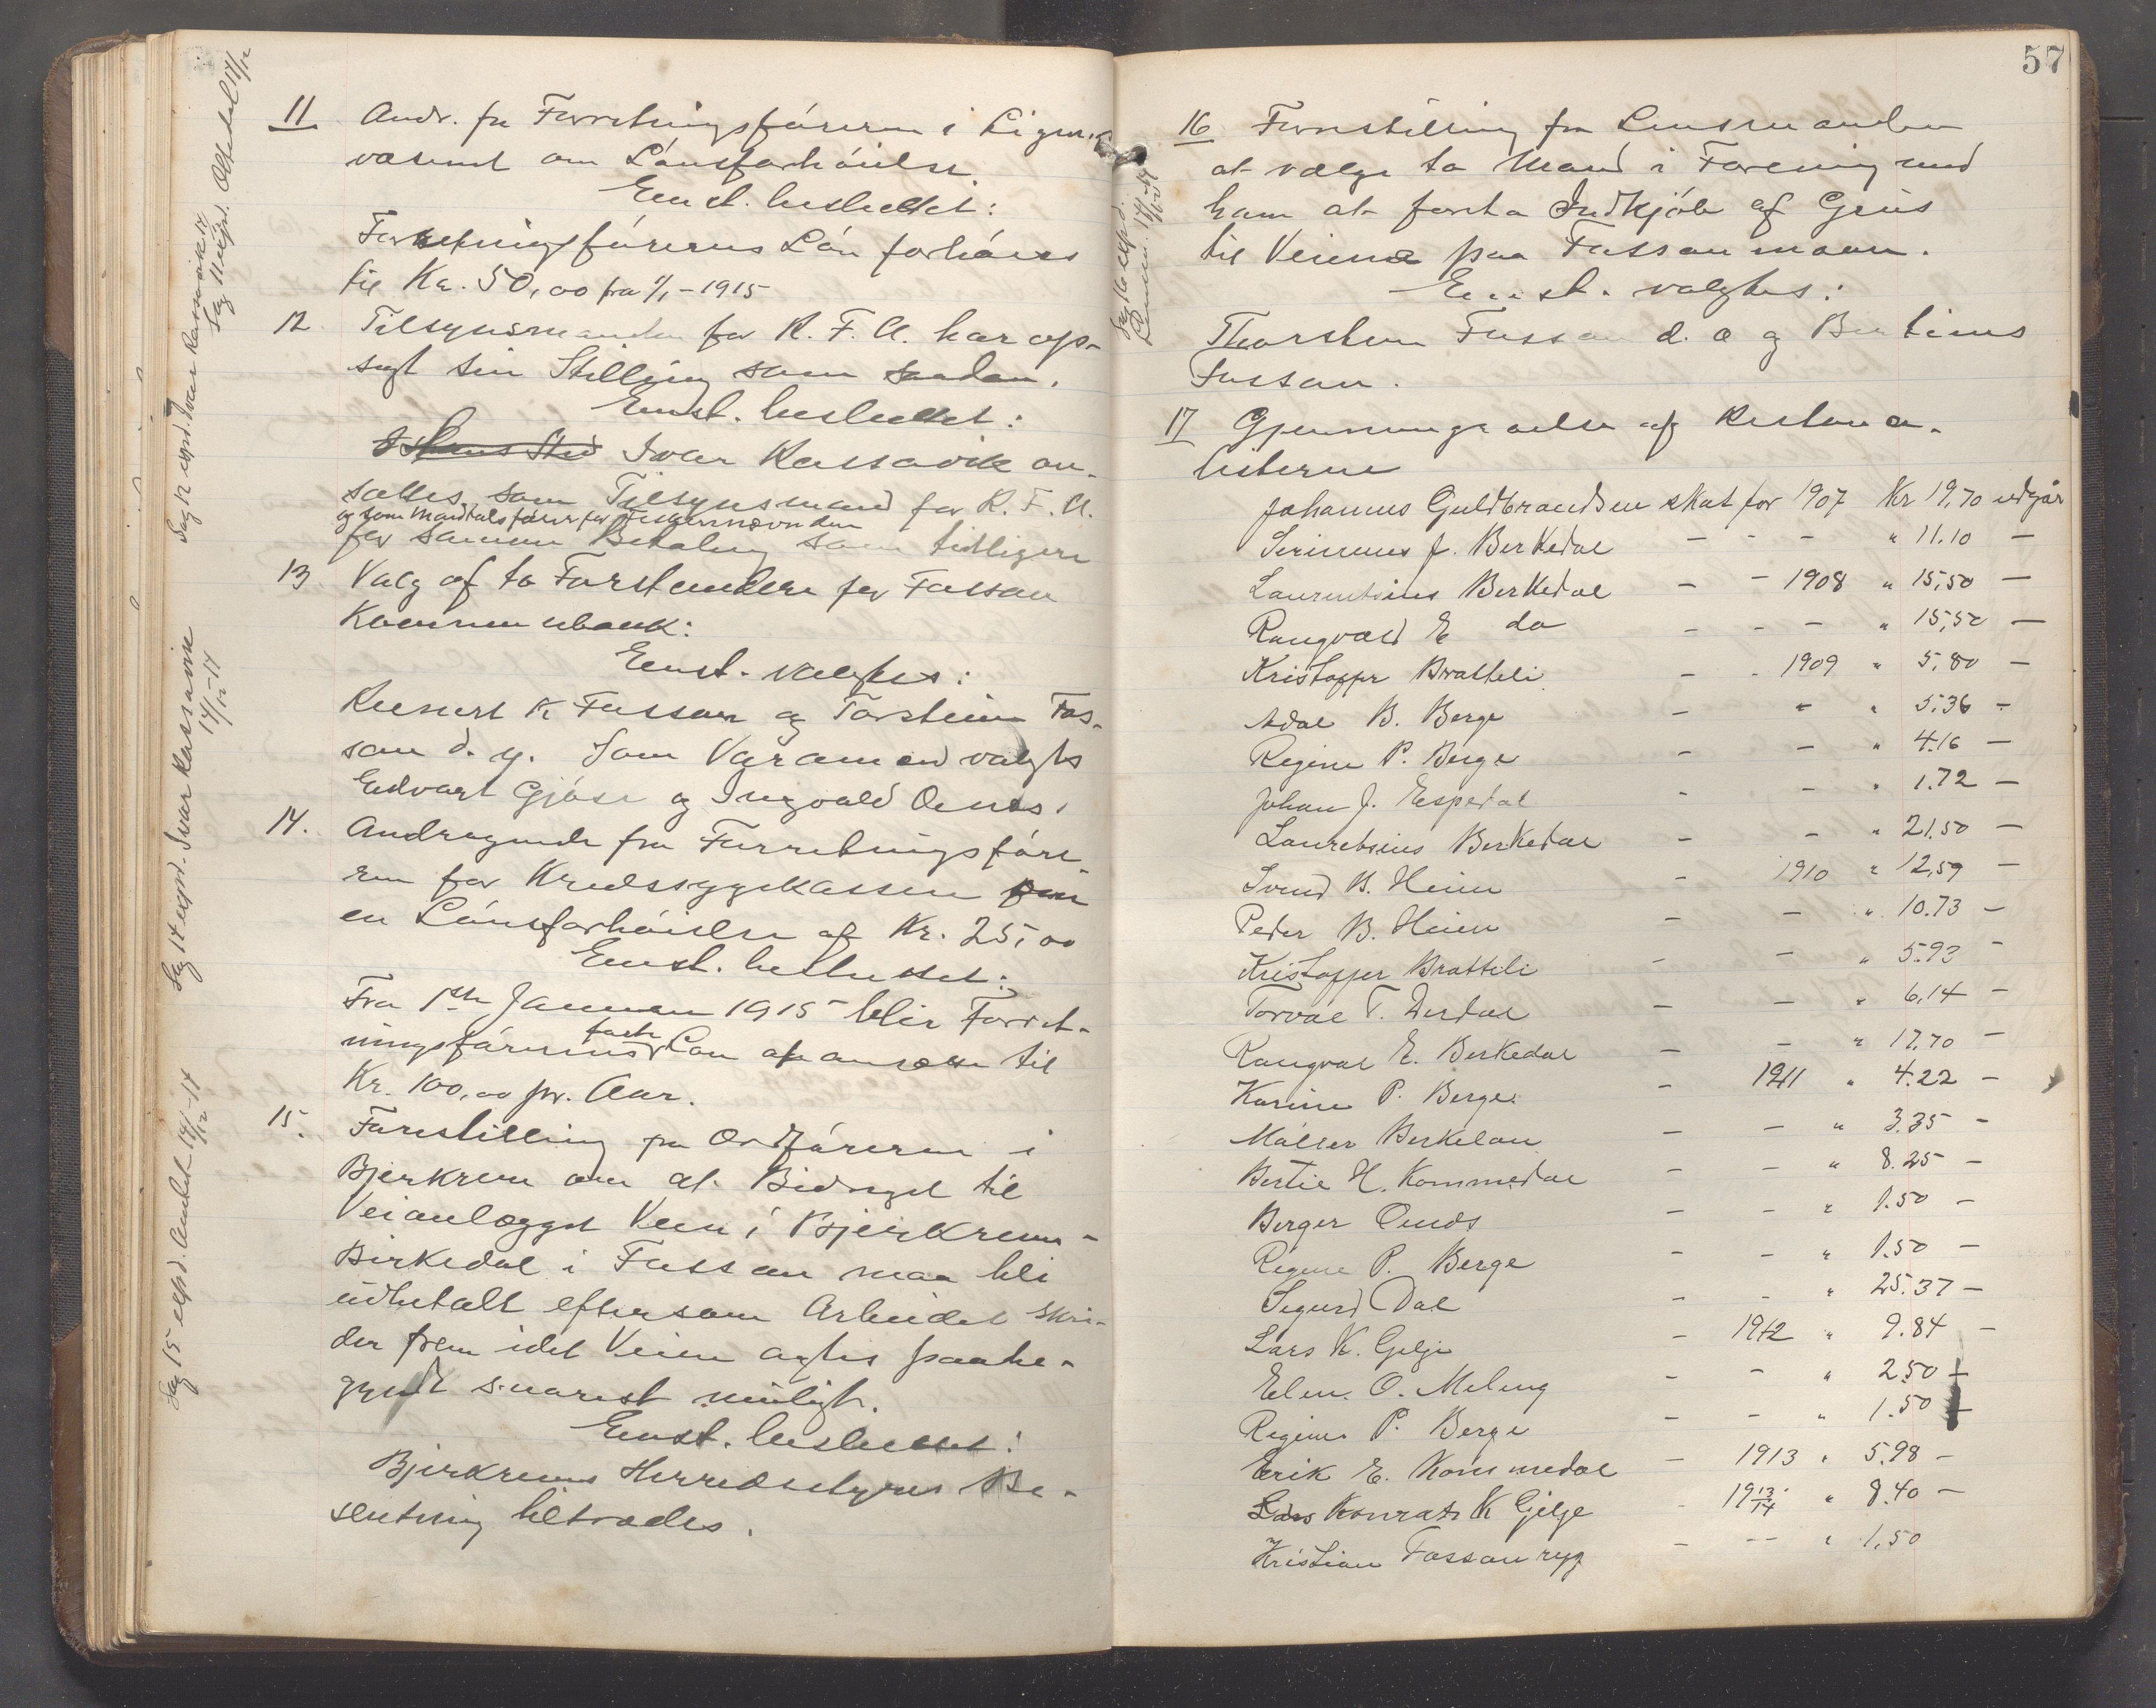 11 Andr. fra Forretningsføreren i Lign.
væsenet om Lønsforhøielse.
Enst. besluttet:
Forretningsførerens Løn forhøies
til Kr. 50,00 fra 1/1-1915
12 Tilsynsmanden for R. F. A. har op-
sagt sin Stilling som saadan.
Enst. besluttet:
Ivar Rassavik an-
sættes som Tilsynsmand for R. F. A.
og som Mandtalsfører for Fiskernævnden
for samme Betaling som tidligere
13 Valg af to Forstandere for Fossan
Kommunebank:
Enst. valgtes:
Reinert K Fossan og Torstein Fos-
san d. y. Som Varamænd valgtes
Edvart Gjøse og Ingvald Oenes.
14. Andragende fra Forretningsføre
ren for Kredssygekassen
en Lønsforhøielse af Kr. 25,00
Enst. besluttet:
Fra 1ste Januar 1915 blir Forret-
ningsførerens faste Løn at ansætte til
Kr. 100,00 pr. Aar.
15. Forestilling fra Ordføreren i
Bjerkreim om at Bidraget til
Veianlægget Veen i Bjerkreim-
Birkedal i Fossan maa bli
udbetalt eftersom Arbeidet skri-
der frem idet Veien agtes paabe-
gyndt snarest muligt.
Enst. besluttet:
Bjerkreims Herredsstyres Be-
slutning tiltrædes.
Sag 11 expd. Oltedal 14/12
Sag 12 expd. Ivar Rassavik 14
Sag 14 expd. Ivar Rassavik
14/12-14
Sag 15 expd. Amtet 14/12-14
57
16 Forestilling fra Lensmanden
at vælge to Mand i Forening med
ham at foreta Indkjøb af Grus
til Veiene paa Fossanmoen.
Enst. valgtes:
Thorstein Fossan d. æ og Bertinus
Fossan.
Sag 16 expd.
Lensm. 14/12-14
17 Gjennemgaaelse af Restance-
listerne
Johannes Guldbrandsen skat for 1907 Kr 19,70 udgår
Serinus J. Berkedal - - - " 11.10 -
Laurentsius Berkedal - - 1908 " 15,50 -
Rangvald E do - - - " 15,50 -
Kristoffer Bratteli - - 1909 " 5,80 -
Adal B. Berge - " " 5,36 -
Regine P. Berge - - " 4.16 -
Johan J. Espedal - - " 1.72 -
Lauretsius Berkedal - - " 21.50 -
Svend B. Heien - 1910 " 12,59 -
Peder B. Heien - - " 10.73 -
Kristoffer Bratteli - - " 5.93 -
Torval T. Dirdal - - " 6,14 -
Rangval E. Berkedal - - " 17,70 -
Karine P. Berge - 1911 " 4.22 -
Møller Berkeland - - " 3.35 -
Bertie H. Kommedal - - " 8.25 -
Berger Oends - - " 1.50 -
Regine P. Berge - - " 1.50 -
Sigurd Dal - - " 25.37 -
Lars K. Gilje - 1912 " 9.84 -
Elen. O. Meling - - " 2.50 -
Regine P. Berge - - " 1.50 -
Erik E. Kommedal - 1913 " 5,98 -
Lars Konrad K Gjelge - 19 13/14 " 8.40 -
Kristian Fossan ryg - - - " 1,50